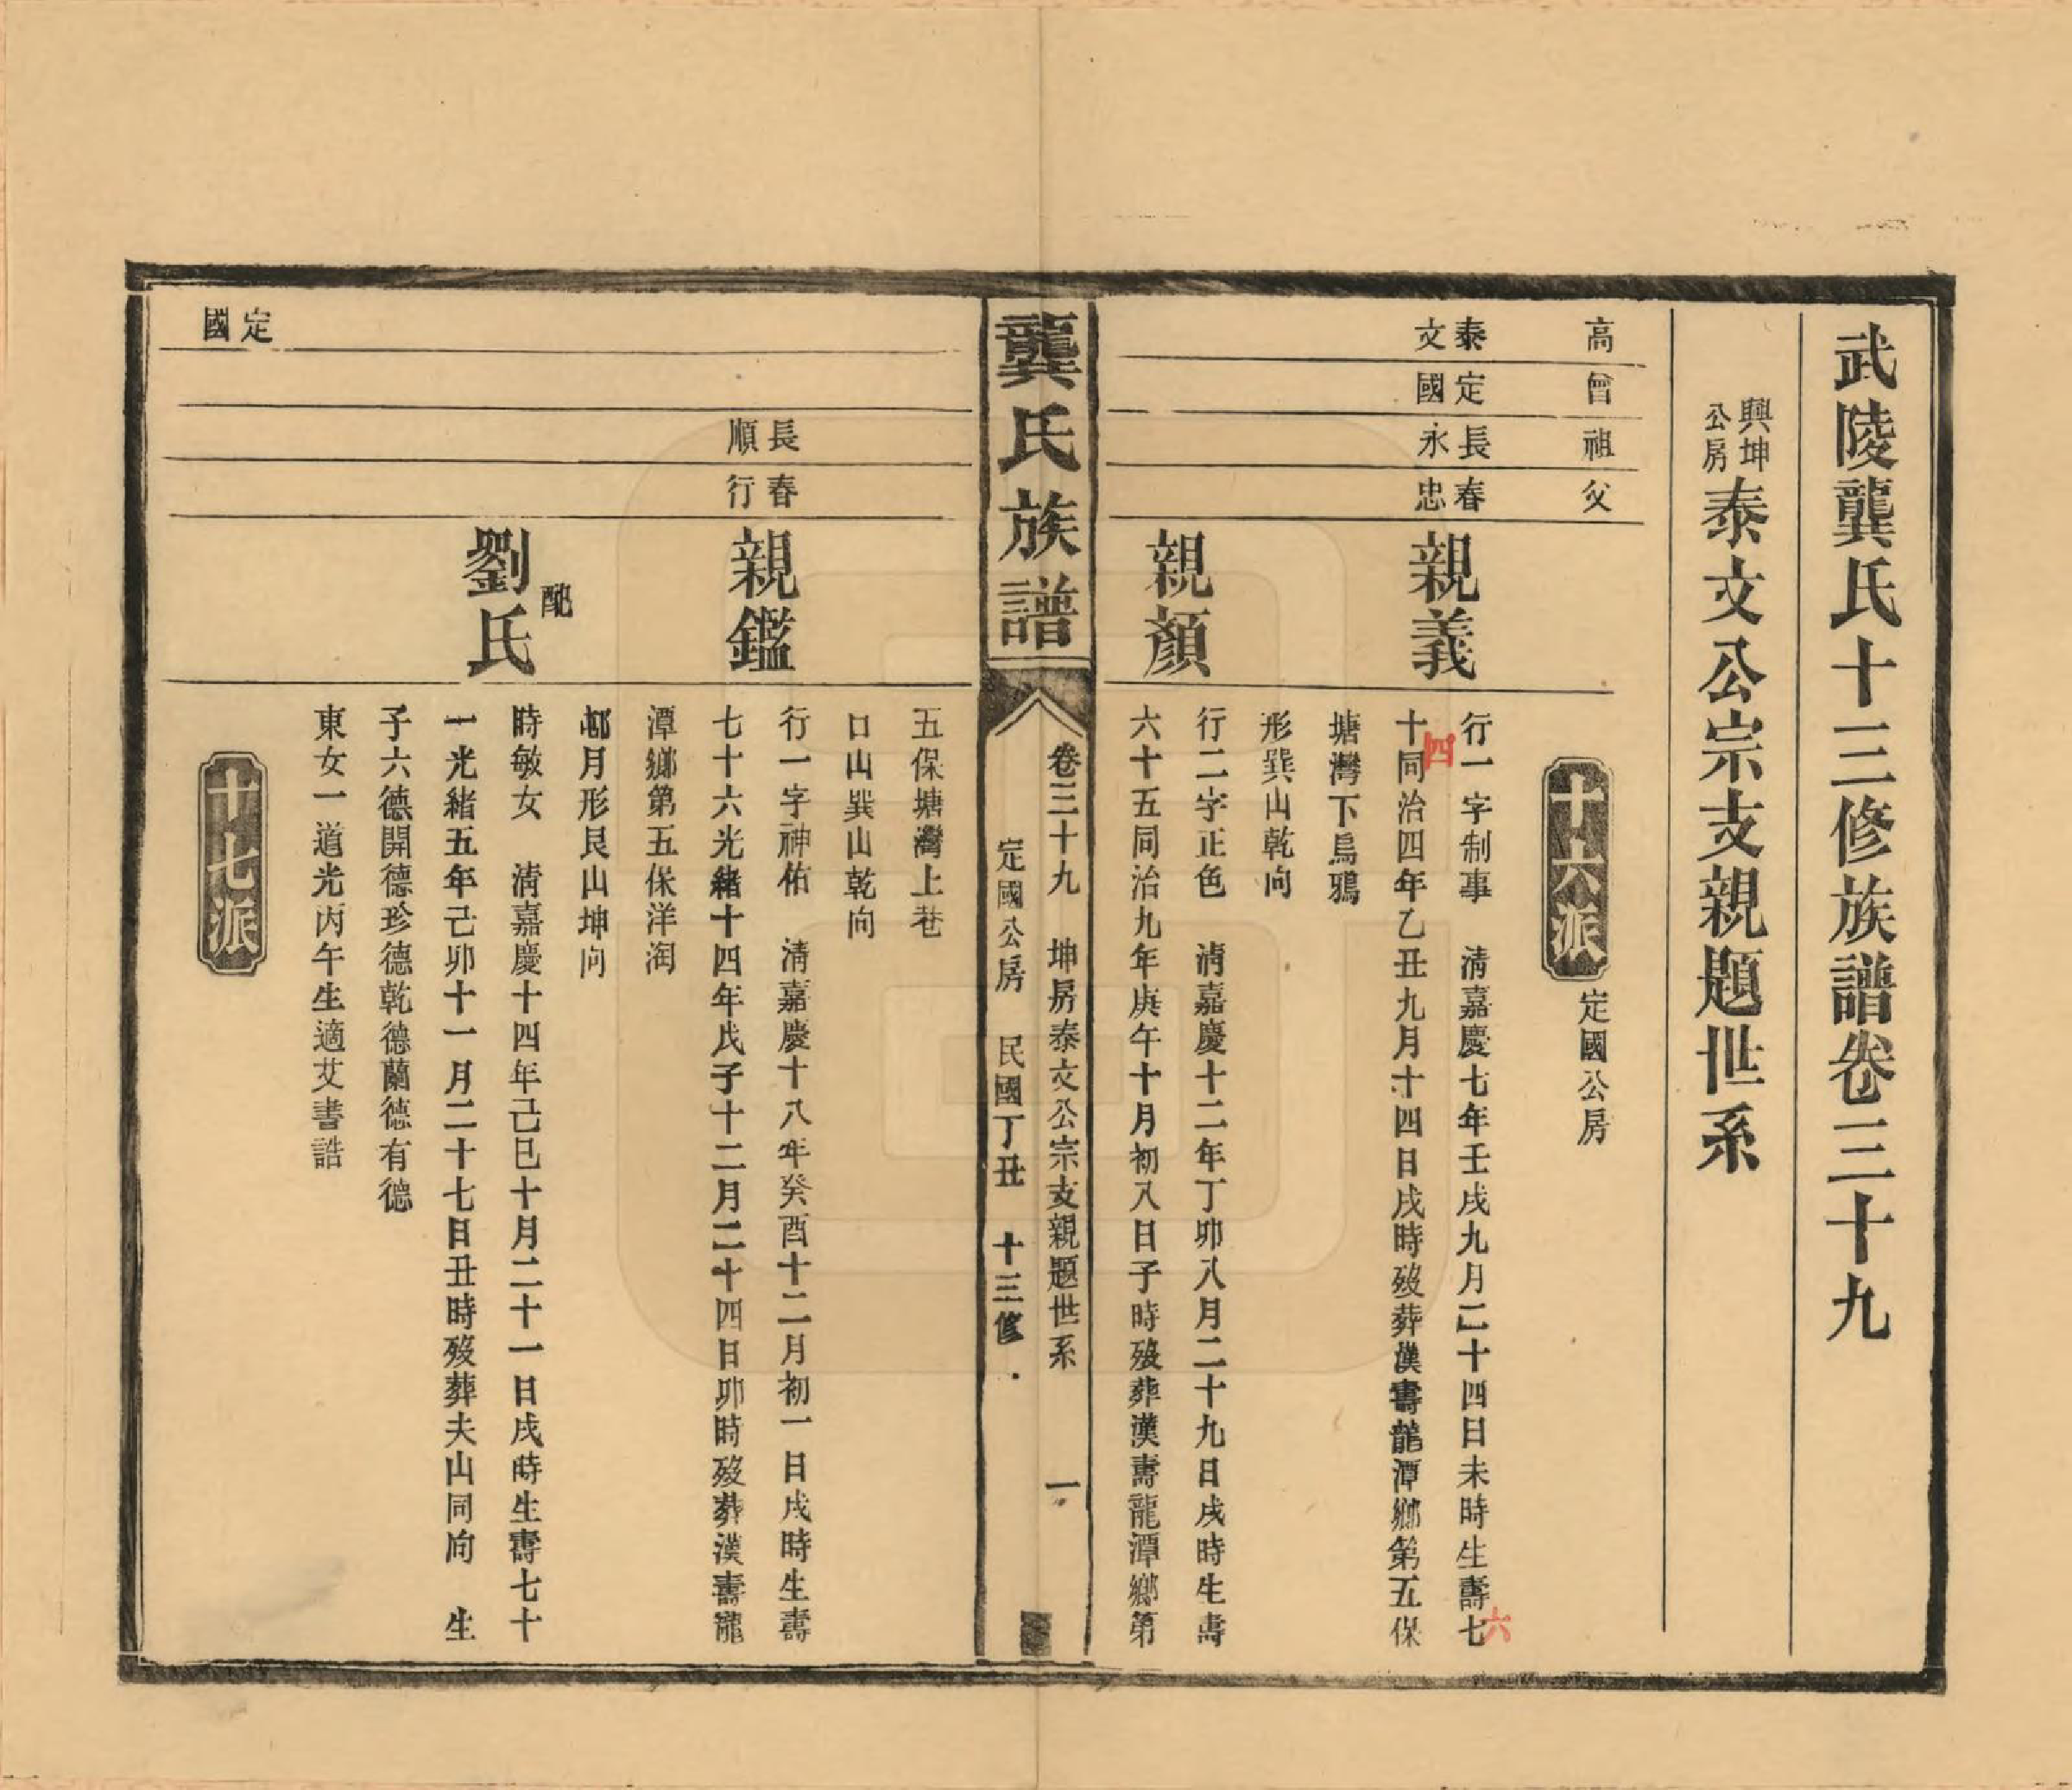 武陵龔氏十三修族譜卷三十九
興坤公房泰文公宗支親題世系
高 曾 祖 父
十六派 定國公房
泰文 定國 長永 春忠
親義
行一字制事 清嘉慶七年壬戌九月二十四日未時生壽七
六
十同治四年乙丑九月十四日戌時歿葬漢壽龍潭鄉第五保
四
塘灣下烏鴉
形巽山乾向
親顏
行二字正色 清嘉慶十二年丁卯八月二十九日戌時生壽
六十五同治九年庚午十月初八日子時歿葬漢壽龍潭鄉第
龔氏族譜
卷三十九 坤房泰文公宗支親題世系 一
定國公房 民國丁丑 十三修
五保塘灣上巷
口山巽山乾向
長順 春行
親鑑
行一字神佑 清嘉慶十八年癸酉十二月初一日戌時生壽
七十六光緒十四年戊子十二月二十四日卯時歿葬漢壽龍
潭鄉第五保洋淘
邨月形艮山坤向
配
劉氏
時敏女 清嘉慶十四年己巳十月二十一日戌時生壽七十
一光緒五年己卯十一月二十七日丑時歿葬夫山同向 生
子六德開德珍德乾德蘭德有德
東女一道光丙午生適艾書誥
定國
十七派